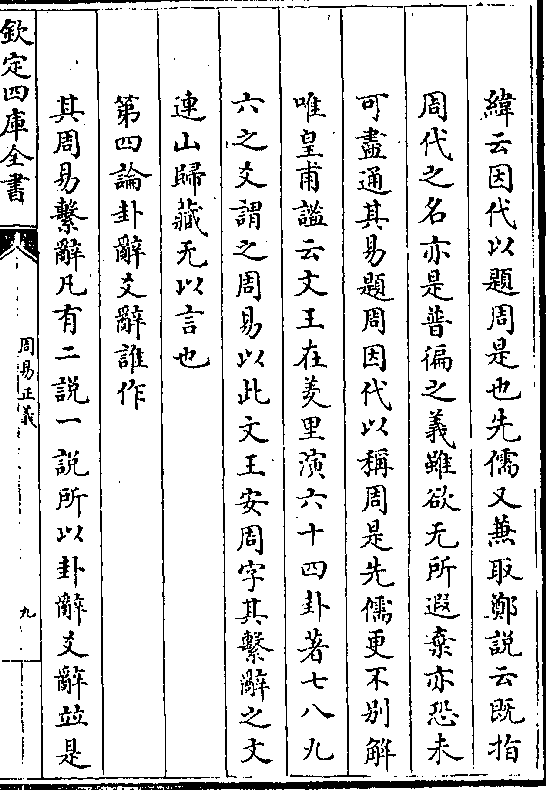 緯云因代以題周是也先儒又兼取鄭說云既指
周代之名亦是普徧之義雖欲无所遐棄亦恐未
可盡通其易題周因代以稱周是先儒更不別解
唯皇甫謐云文王在羑里演六十四卦著七八九
六之爻謂之周易以此文王安周字其繫辭之文
連山歸藏无以言也
第四論卦辭爻辭誰作
其周易繫辭凡有二說一說所以卦辭爻辭竝是
欽定四庫全書
周易正義
九